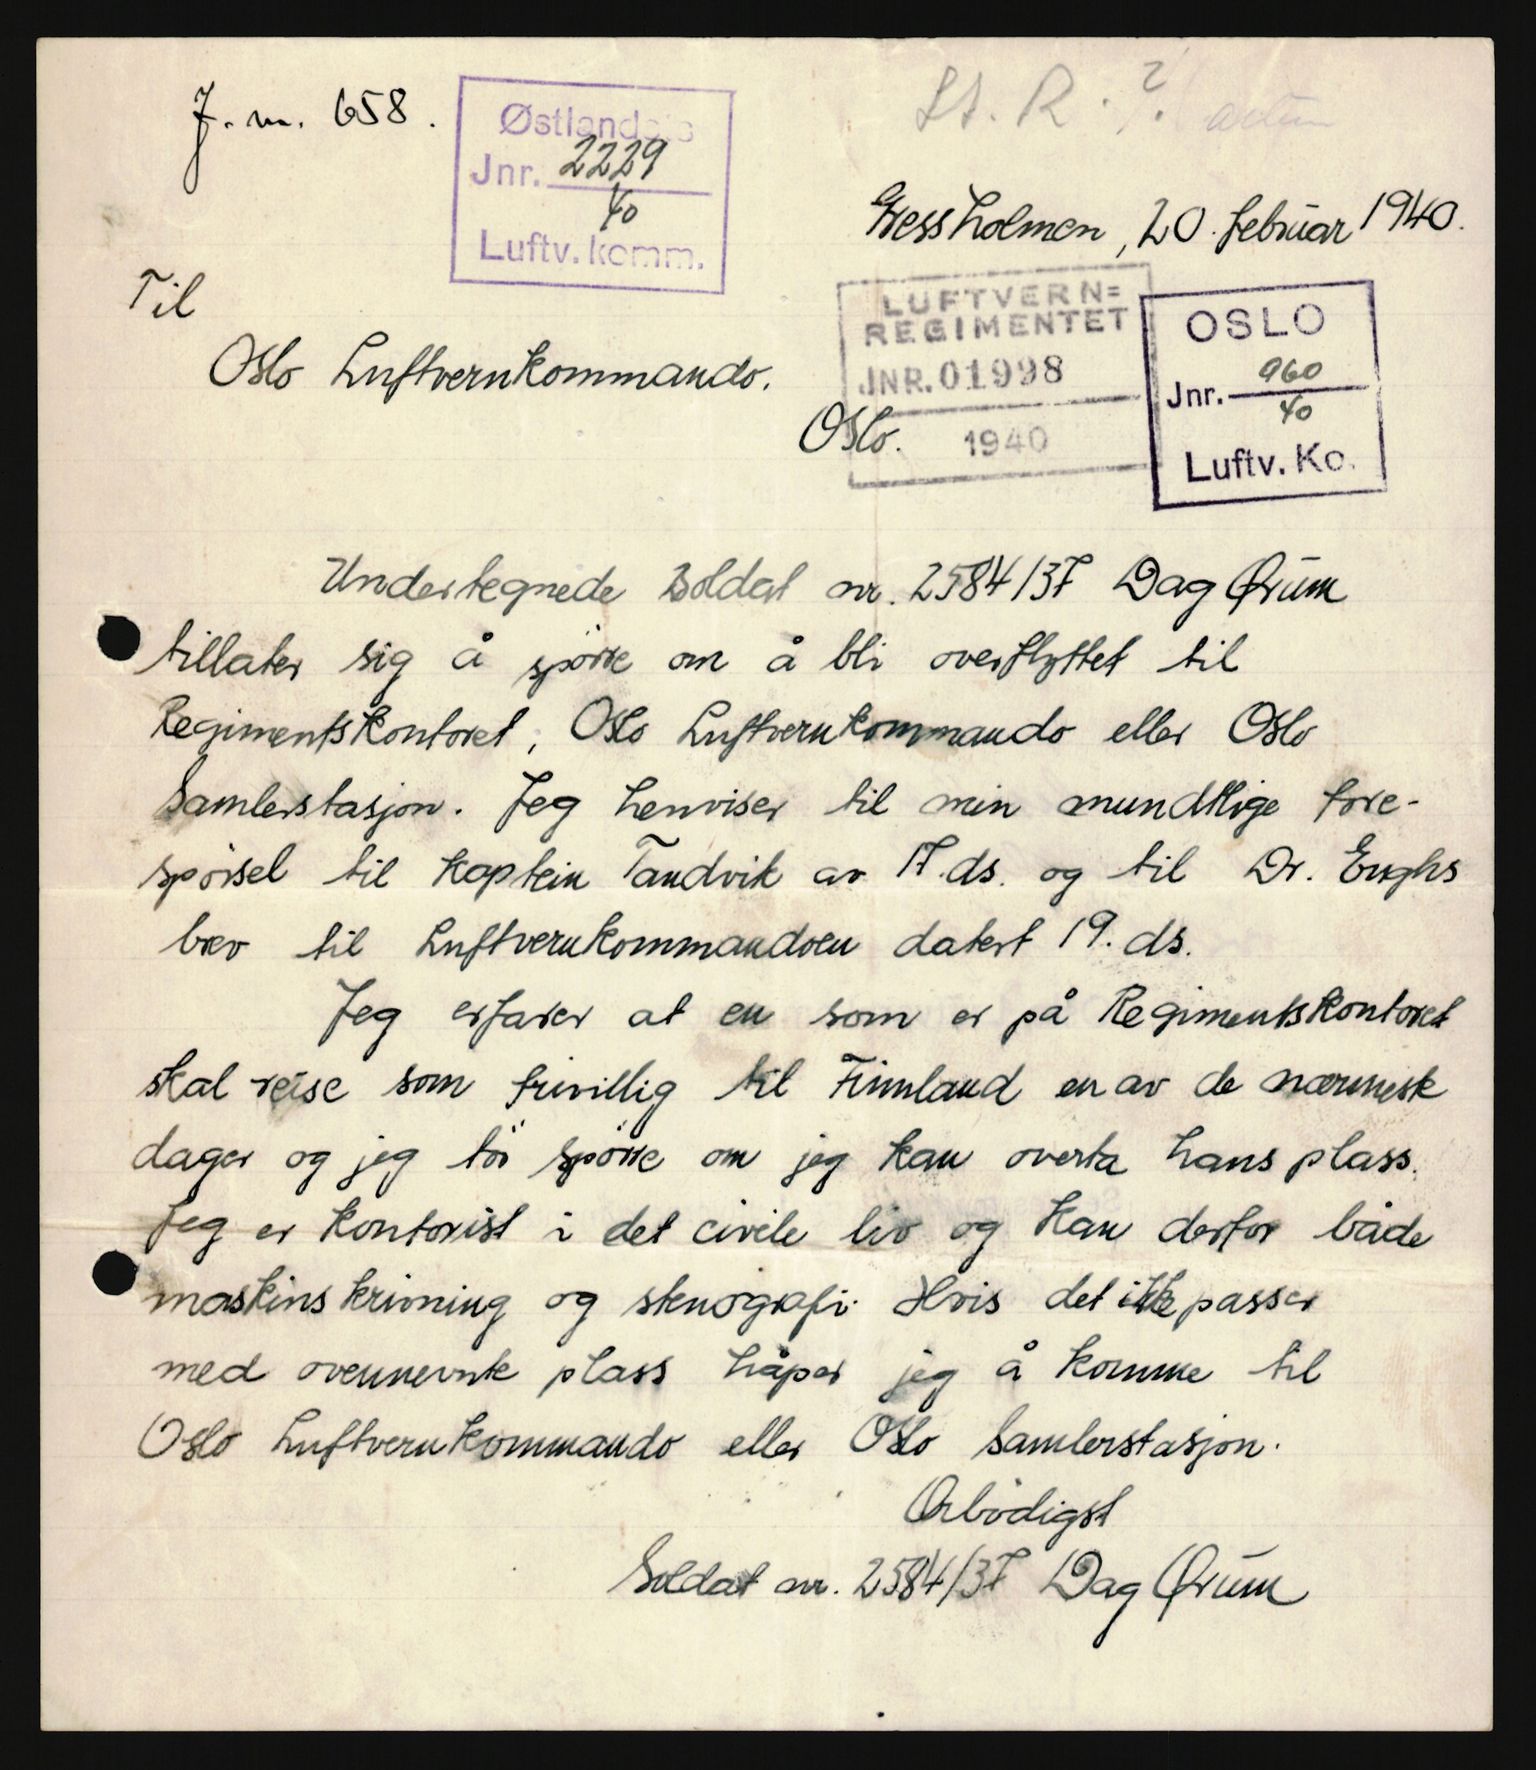 J. nr. 658.
Østlandets
Jnr. 2229
40
Luftv. komm.
St. R. ?
Gressholmen, 20. februar 1940.
Til
Oslo Luftvernkommando.
Oslo.
LUFTVERN=
REGIMENTET
JNR. 01998
1940
OSLO
Jnr. 960
40
Luftv. Ko.
Undertegnede soldat nr. 2584/37 Dag Ørum
tillater sig å spörre om å bli overflyttet til
Regimentskontoret, Oslo Luftvernkommando eller Oslo
Samlerstasjon. Jeg henviser til min mundtlige fore-
spörsel til kaptein Tandvik av 17. ds. og til Dr. Enghs
brev til Luftvernkommandoen datert 19. ds.
Jeg erfarer at en som er på Regimentskontoret
skal reise som frivillig til Finnland en av de nærmeste
dager og jeg tör spörre om jeg kan overta hans plass.
Jeg er kontorist i det civile liv og kan derfor både
maskinskrivning og stenografi. Hvis det ikke passer
med ovennevnte plass håper jeg å komme til
Oslo Luftvernkommando eller Oslo Samlerstasjon.
Ærbödigst
Soldat nr. 2584/37 Dag Ørum